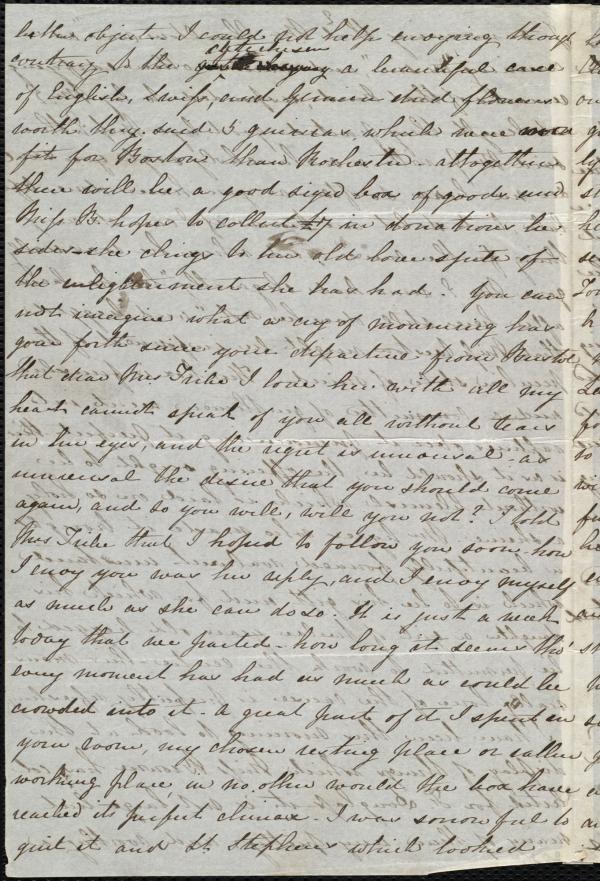 other object. I could not help envying though
contrary to the catechism a beautiful case
of English, Swiss and German dried flowers
worth they said 5 guineas which were more
fit for Boston than Rochester. altogether
there will be a good sized box of goods and
Miss B. hopes to collect in donations be
sides - she clings to her old love spite of
the enlightenment she has had. You can
not imagine what a cry of mourning has
gone forth since your departure from Bristol
that dear Mrs Tribe I love her with all my
heart cannot speak of you all without tears
in her eyes, and the regret is universal - as
universal the desire that you should come
again, and so you will, will you not? I told
Mrs Tribe that I hoped to follow you soon - how
I envy you was her reply, and I envy myself
as much as she can do so. It is just a week
today that we parted - how long it seems tho'
every moment has had as much as could be
crowded into it. a great part of it I spent in
your room, my chosen resting place or rather
working place in no other would the box have
reached its perfect climax. I was sorrowful to
quit it and St. Stephens which looked